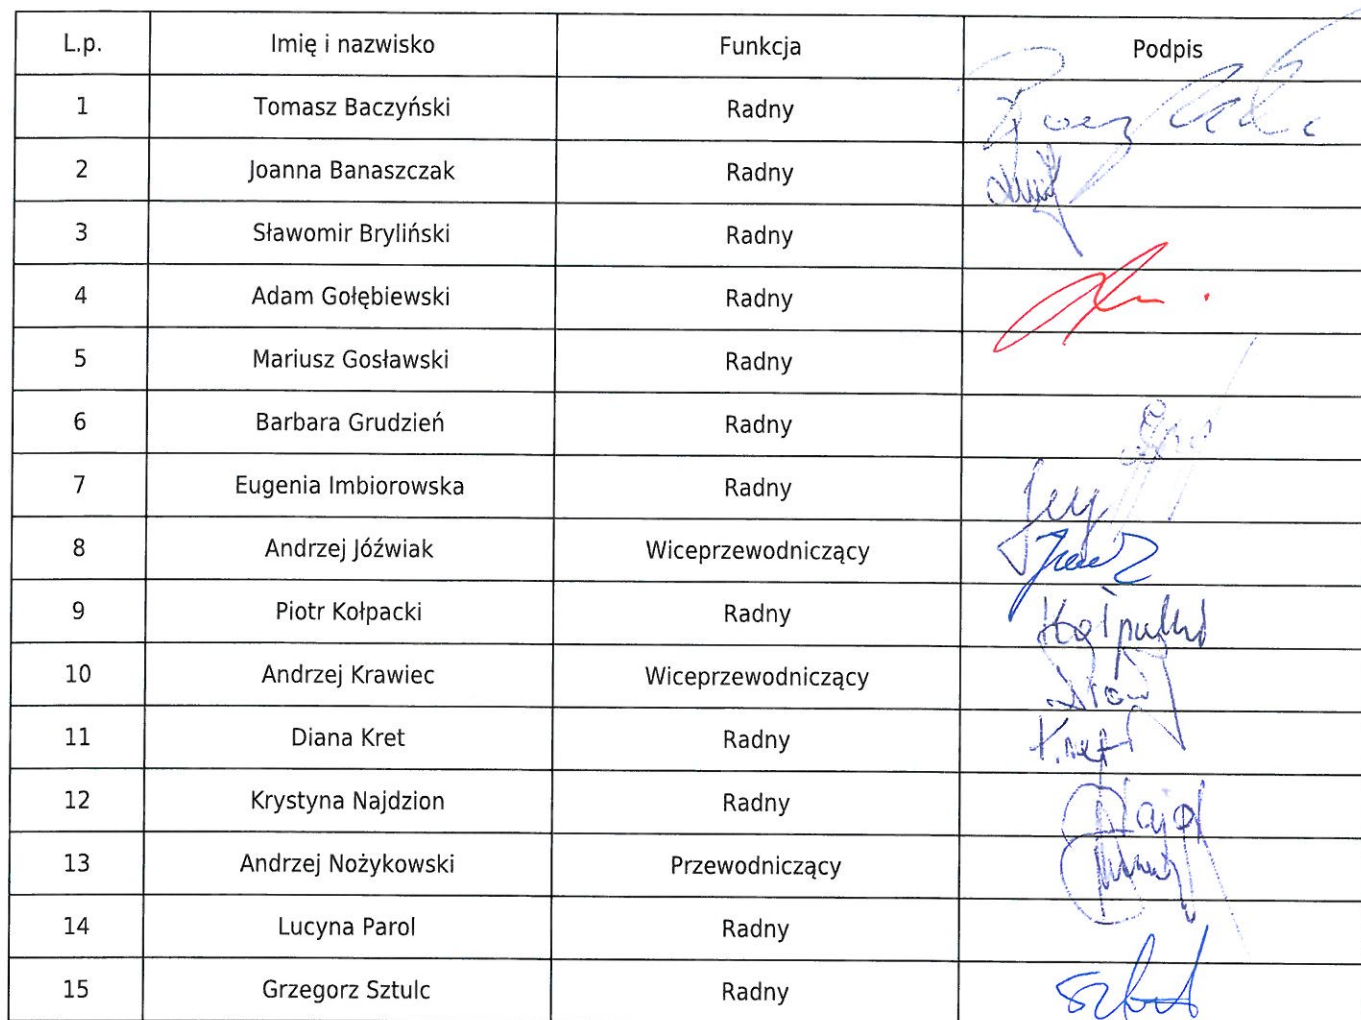 L.p. Imię i nazwisko Funkcja Podpis
1 Tomasz Baczyński Radny
2 Joanna Banaszczak Radny
3 Sławomir Bryliński Radny
4 Adam Gołębiewski Radny
5 Mariusz Gosławski Radny
6 Barbara Grudzień Radny
7 Eugenia Imbiorowska Radny
8 Andrzej Jóźwiak Wiceprzewodniczący
9 Piotr Kołpacki Radny
10 Andrzej Krawiec Wiceprzewodniczący
11 Diana Kret Radny
12 Krystyna Najdzion Radny
13 Andrzej Nożykowski Przewodniczący
14 Lucyna Parol Radny
15 Grzegorz Sztulc Radny